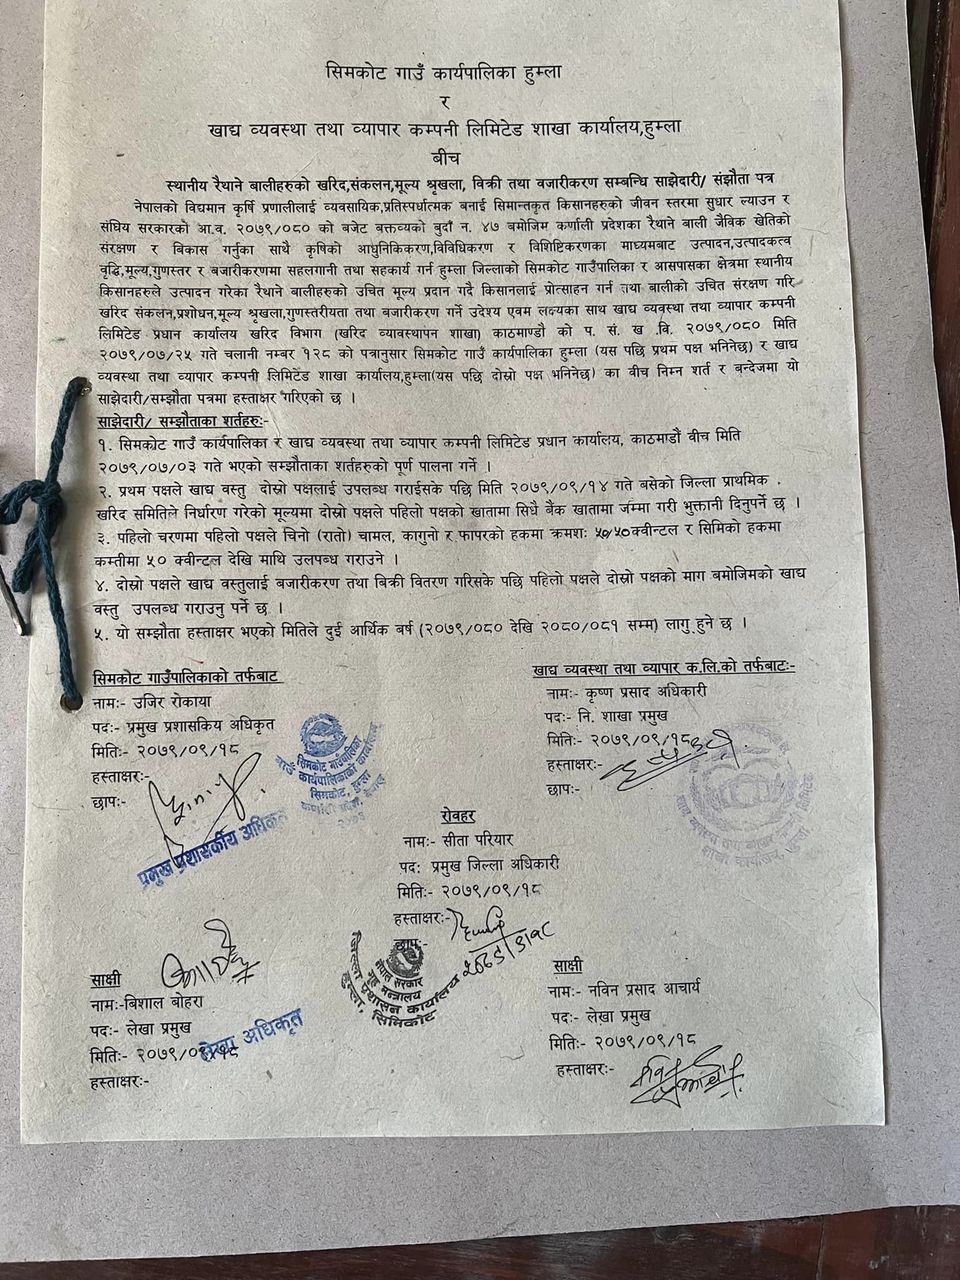 सिमकोट गाउँ कार्यपालिका हुम्ला
र
खाद्य व्यवस्था तथा व्यापार कम्पनी लिमिटेड शाखा कार्यालय,हुम्ला
बीच
स्थानीय रैथाने बालीहरुको खरिद,संकलन,मूल्य श्रृखला, विक्री तथा वजारीकरण सम्बन्धि साझेदारी/ संझौता पत्र
नेपालको विद्यमान कृषि प्रणालीलाई व्यवसायिक,प्रतिस्पर्धात्मक बनाई सिमान्तकृत किसानहरुको जीवन स्तरमा सुधार ल्याउन र
संघिय सरकारको आ.व. २०७९/०८० को बजेट बक्तव्यको बुदाँ न. ४७ बमोजिम कर्णाली प्रदेशका रैथाने बाली जैविक खेतिको
संरक्षण र बिकास गर्नुका साथै कृषिको आधुनिकिकरण,विविधिकरण र विशिष्टिकरणका माध्यमबाट उत्पादन,उत्पादकत्व
वृद्धि,मूल्य,गुणस्तर र बजारीकरणमा सहलगानी तथा सहकार्य गर्न हुम्ला जिल्लाको सिमकोट गाउँपालिका र आसपासका क्षेत्रमा स्थानीय
किसानहरुले उत्पादन गरेका रैथाने बालीहरुको उचित मूल्य प्रदान गदै किसानलाई प्रोत्साहन गर्न तथा बालीको उचित संरक्षण गरि
खरिद संकलन,प्रशोधन,मूल्य श्रृखला,गुणस्तरीयता तथा बजारीकरण गर्ने उदेश्य एवम लक्ष्यका साथ खाद्य व्यवस्था तथा व्यापार कम्पनी
लिमिटेड प्रधान कार्यालय खरिद विभाग (खरिद व्यावस्थापन शाखा) काठमाण्डौ को प. सं. ख .वि. २०७९/०८० मिति
२०७९/०७/२५ गते चलानी नम्बर १२८ को पत्रानुसार सिमकोट गाउँ कार्यपालिका हुम्ला (यस पछि प्रथम पक्ष भनिनेछ) र खाद्य
व्यवस्था तथा व्यापार कम्पनी लिमिटेड शाखा कार्यालय,हुम्ला(यस पछि दोस्रो पक्ष भनिनेछ) का वीच निम्न शर्त र बन्देजमा यो
साझेदारी/सम्झौता पत्रमा हस्ताक्षर गरिएको छ ।
साझेदारी/ सम्झौताका शर्तहरु:-
१. सिमकोट गाउँ कार्यपालिका र खाद्य व्यवस्था तथा व्यापार कम्पनी लिमिटेड प्रधान कार्यालय, काठमाडौं बीच मिति
२०७९/०७/०३ गते भएको सम्झौताका शर्तहरुको पूर्ण पालना गर्ने ।
२. प्रथम पक्षले खाद्य वस्तु दोस्रो पक्षलाई उपलब्ध गराईसके पछि मिति २०७९/०९/१४ गते बसेको जिल्ला प्राथमिक
खरिद समितिले निर्धारण गरेको मूल्यमा दोस्रो पक्षले पहिलो पक्षको खातामा सिधै बैंक खातामा जम्मा गरी भुक्तानी दिनुपर्ने छ ।
३. पहिलो चरणमा पहिलो पक्षले चिनो (रातो) चामल, कागुनो र फापरको हकमा क्रमशः ५०/५०क्वीन्टल र सिमिको हकमा
कम्तीमा ५० क्वीन्टल देखि माथि उलपब्ध गराउने ।
४. दोस्रो पक्षले खाद्य वस्तुलाई बजारीकरण तथा बिक्री वितरण गरिसके पछि पहिलो पक्षले दोस्रो पक्षको माग बमोजिमको खाद्य
वस्तु उपलब्ध गराउनु पर्ने छ ।
५. यो सम्झौता हस्ताक्षर भएको मितिले दुई आर्थिक बर्ष (२०७९/०८० देखि २०८०/०८१ सम्म) लागु हुने छ ।
सिमकोट गाउँपालिकाको तर्फबाट
नामः- उजिर रोकाया
पदः- प्रमुख प्रशासकिय अधिकृत
मितिः- २०७९/०९/१८
हस्ताक्षरः-
छापः-
सिमकोट गाउँपालिका
गाउँ कार्यपालिकाको कार्यालय
सिमकोट, हुम्ला
कर्णाली प्रदेश, नेपाल
२०७३
प्रमुख प्रशासकीय अधिकृत
खाद्य व्यवस्था तथा व्यापार क.लि.को तर्फबाटः-
नामः- कृष्ण प्रसाद अधिकारी
पदः- नि. शाखा प्रमुख
मितिः- २०७९/०९/१८
हस्ताक्षरः-
छापः-
रोवहर
नामः- सीता परियार
पदः प्रमुख जिल्ला अधिकारी
मितिः- २०७९/०९/१८
हस्ताक्षरः-
छापः-
नेपाल सरकार
गृह मन्त्रालय
जिल्ला प्रशासन कार्यालय
हुम्ला, सिमिकोट
साक्षी
नामः-बिशाल बोहरा
पदः- लेखा प्रमुख
मितिः- २०७९/०९/१८
हस्ताक्षरः-
लेखा अधिकृत
साक्षी
नामः- नविन प्रसाद आचार्य
पदः- लेखा प्रमुख
मितिः- २०७९/०९/१८
हस्ताक्षरः-